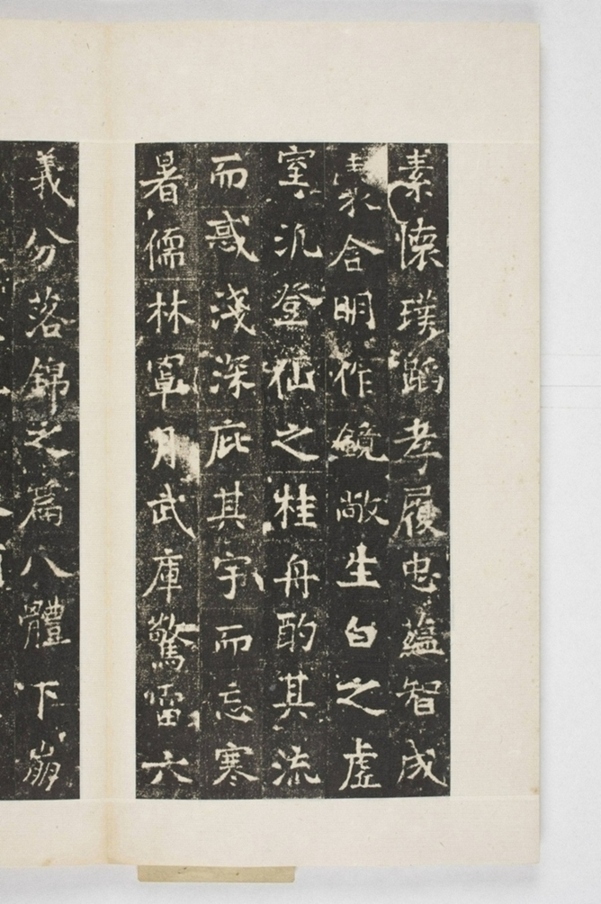 素懷璞蹈孝履忠蘊智成
含明作鏡敞生白之虛
室汎登仙之桂舟酌其流
而惑淺深庇其宇而忘寒
暑儒林罩月武庫驚雷六
義分落錦之篇八體下崩